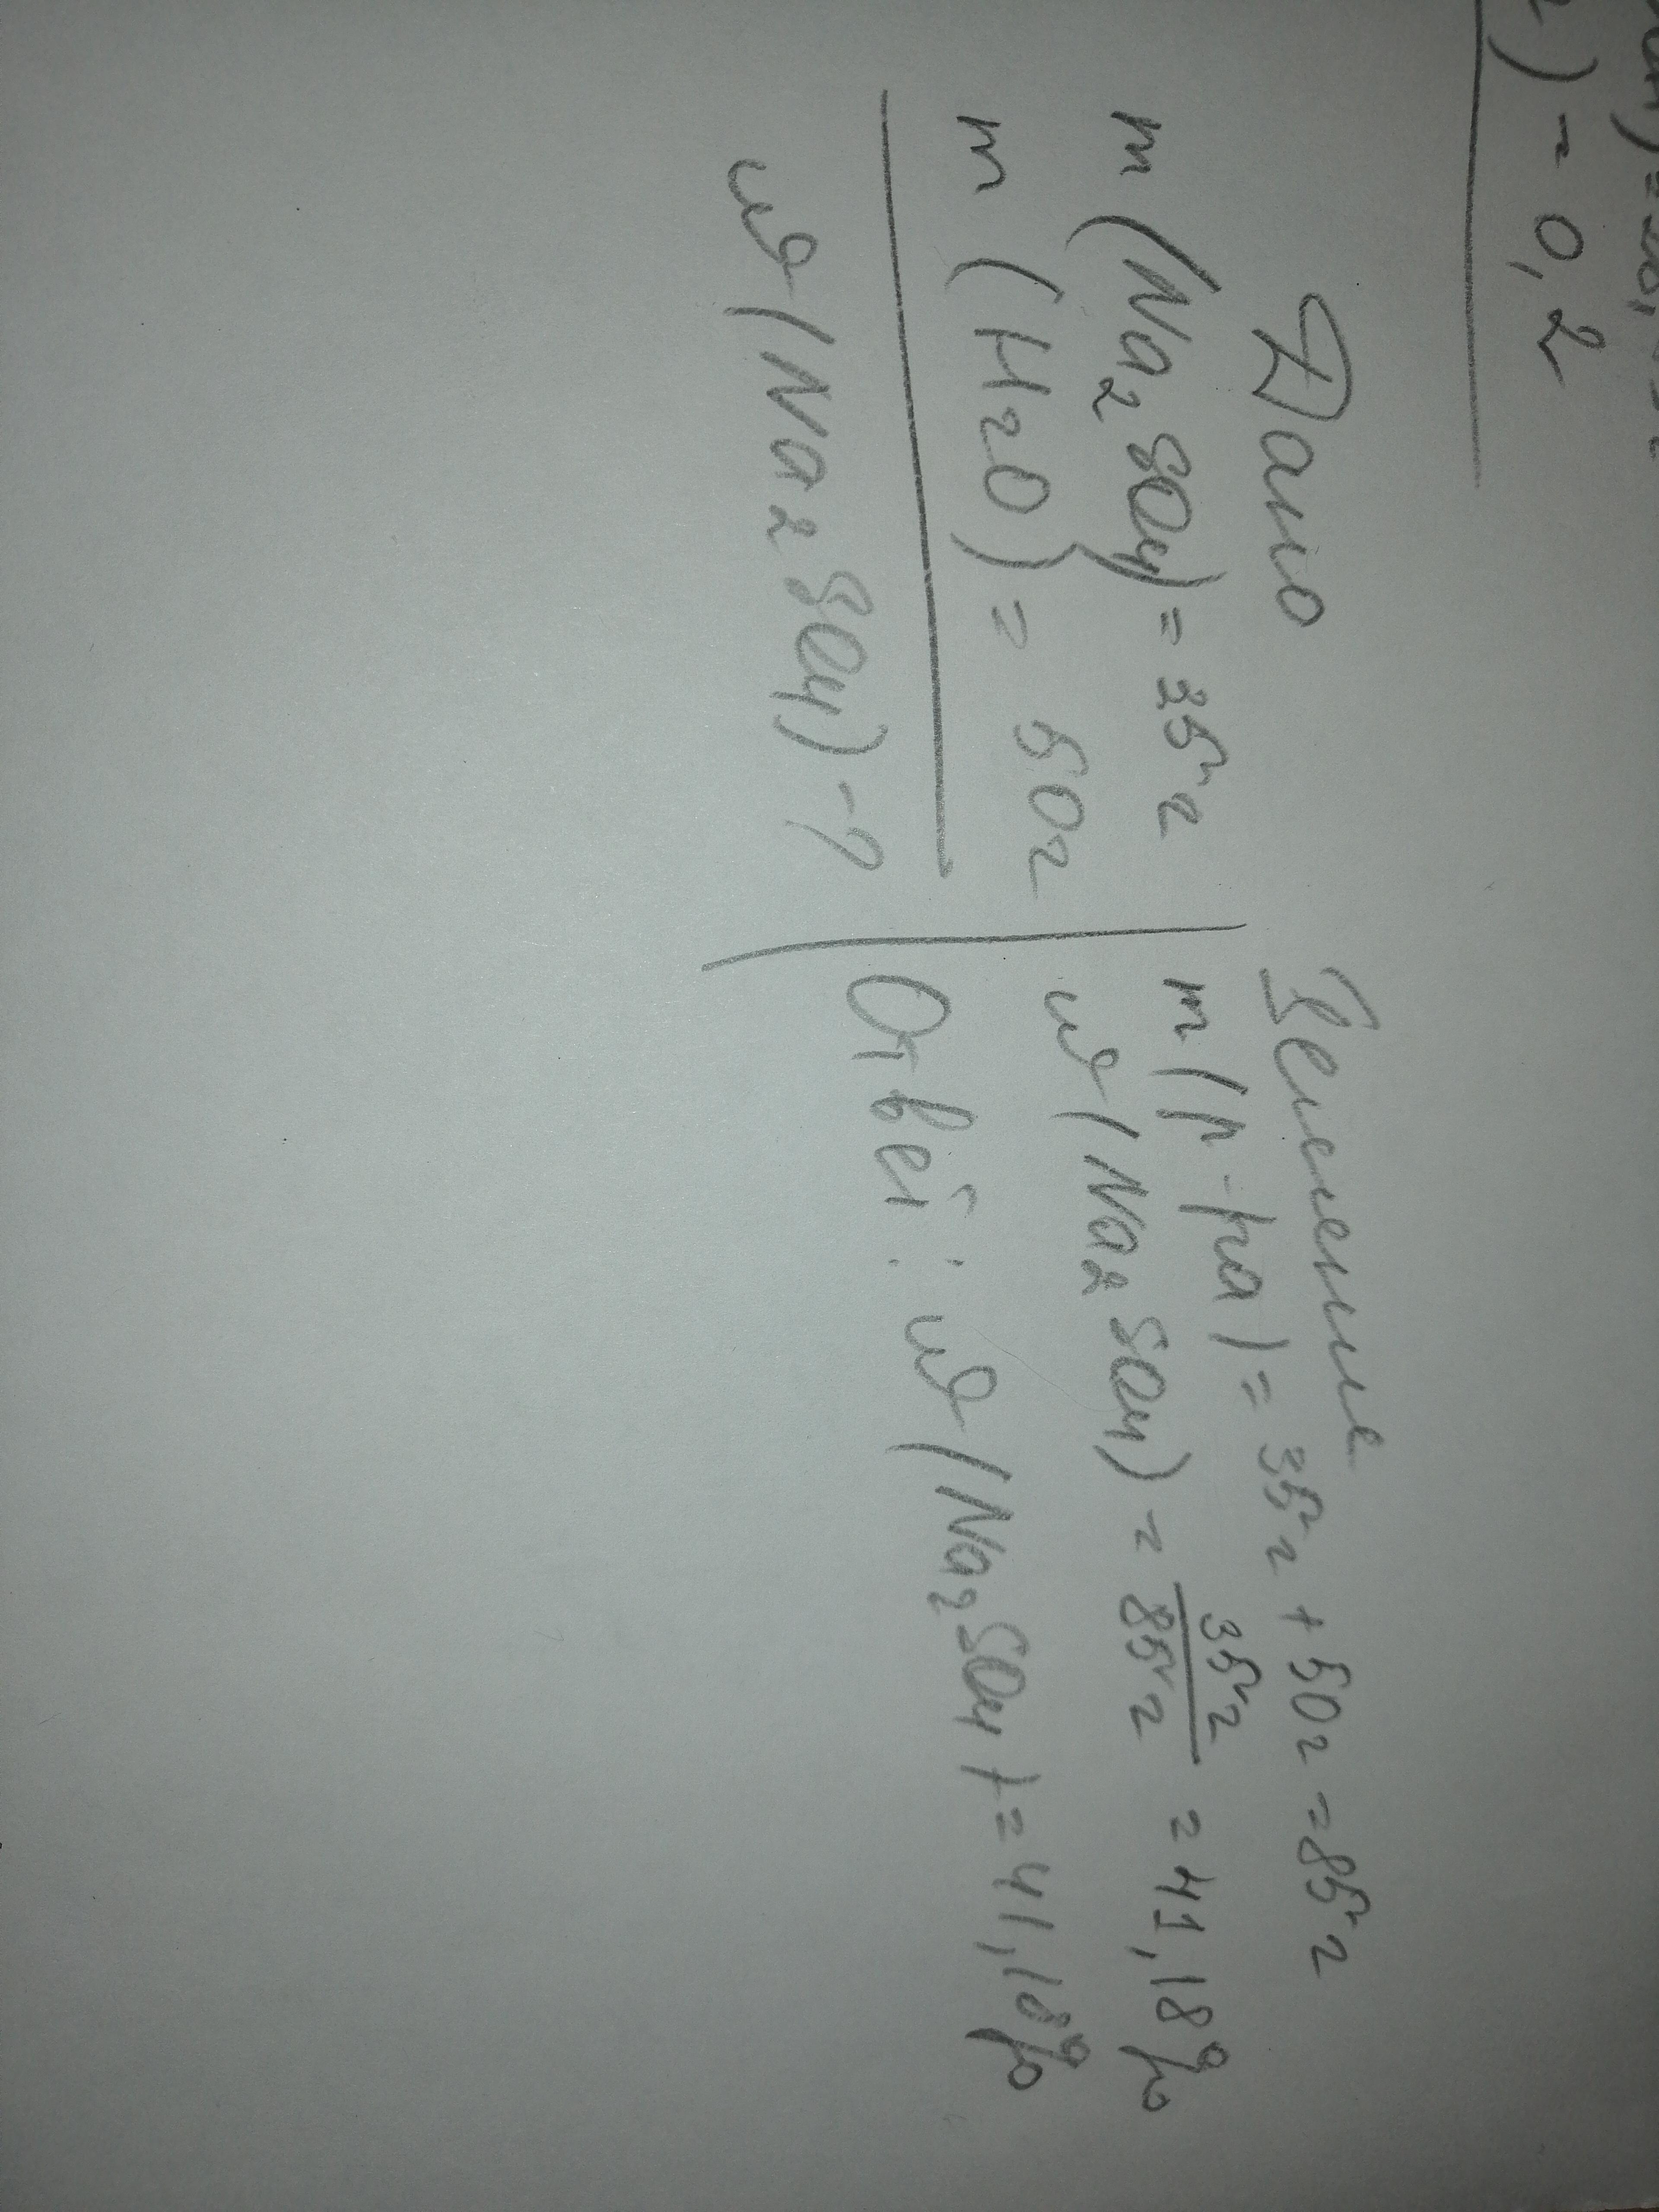 ) = 0,2
Дано
m (Na2SO4) = 35 г
m (H2O) = 50 г
ω (Na2SO4) - ?
Решение
m (р-ра) = 35 г + 50 г = 85 г
ω (Na2SO4) = 35 г / 85 г = 41,18%
Ответ: ω (Na2SO4) = 41,18%